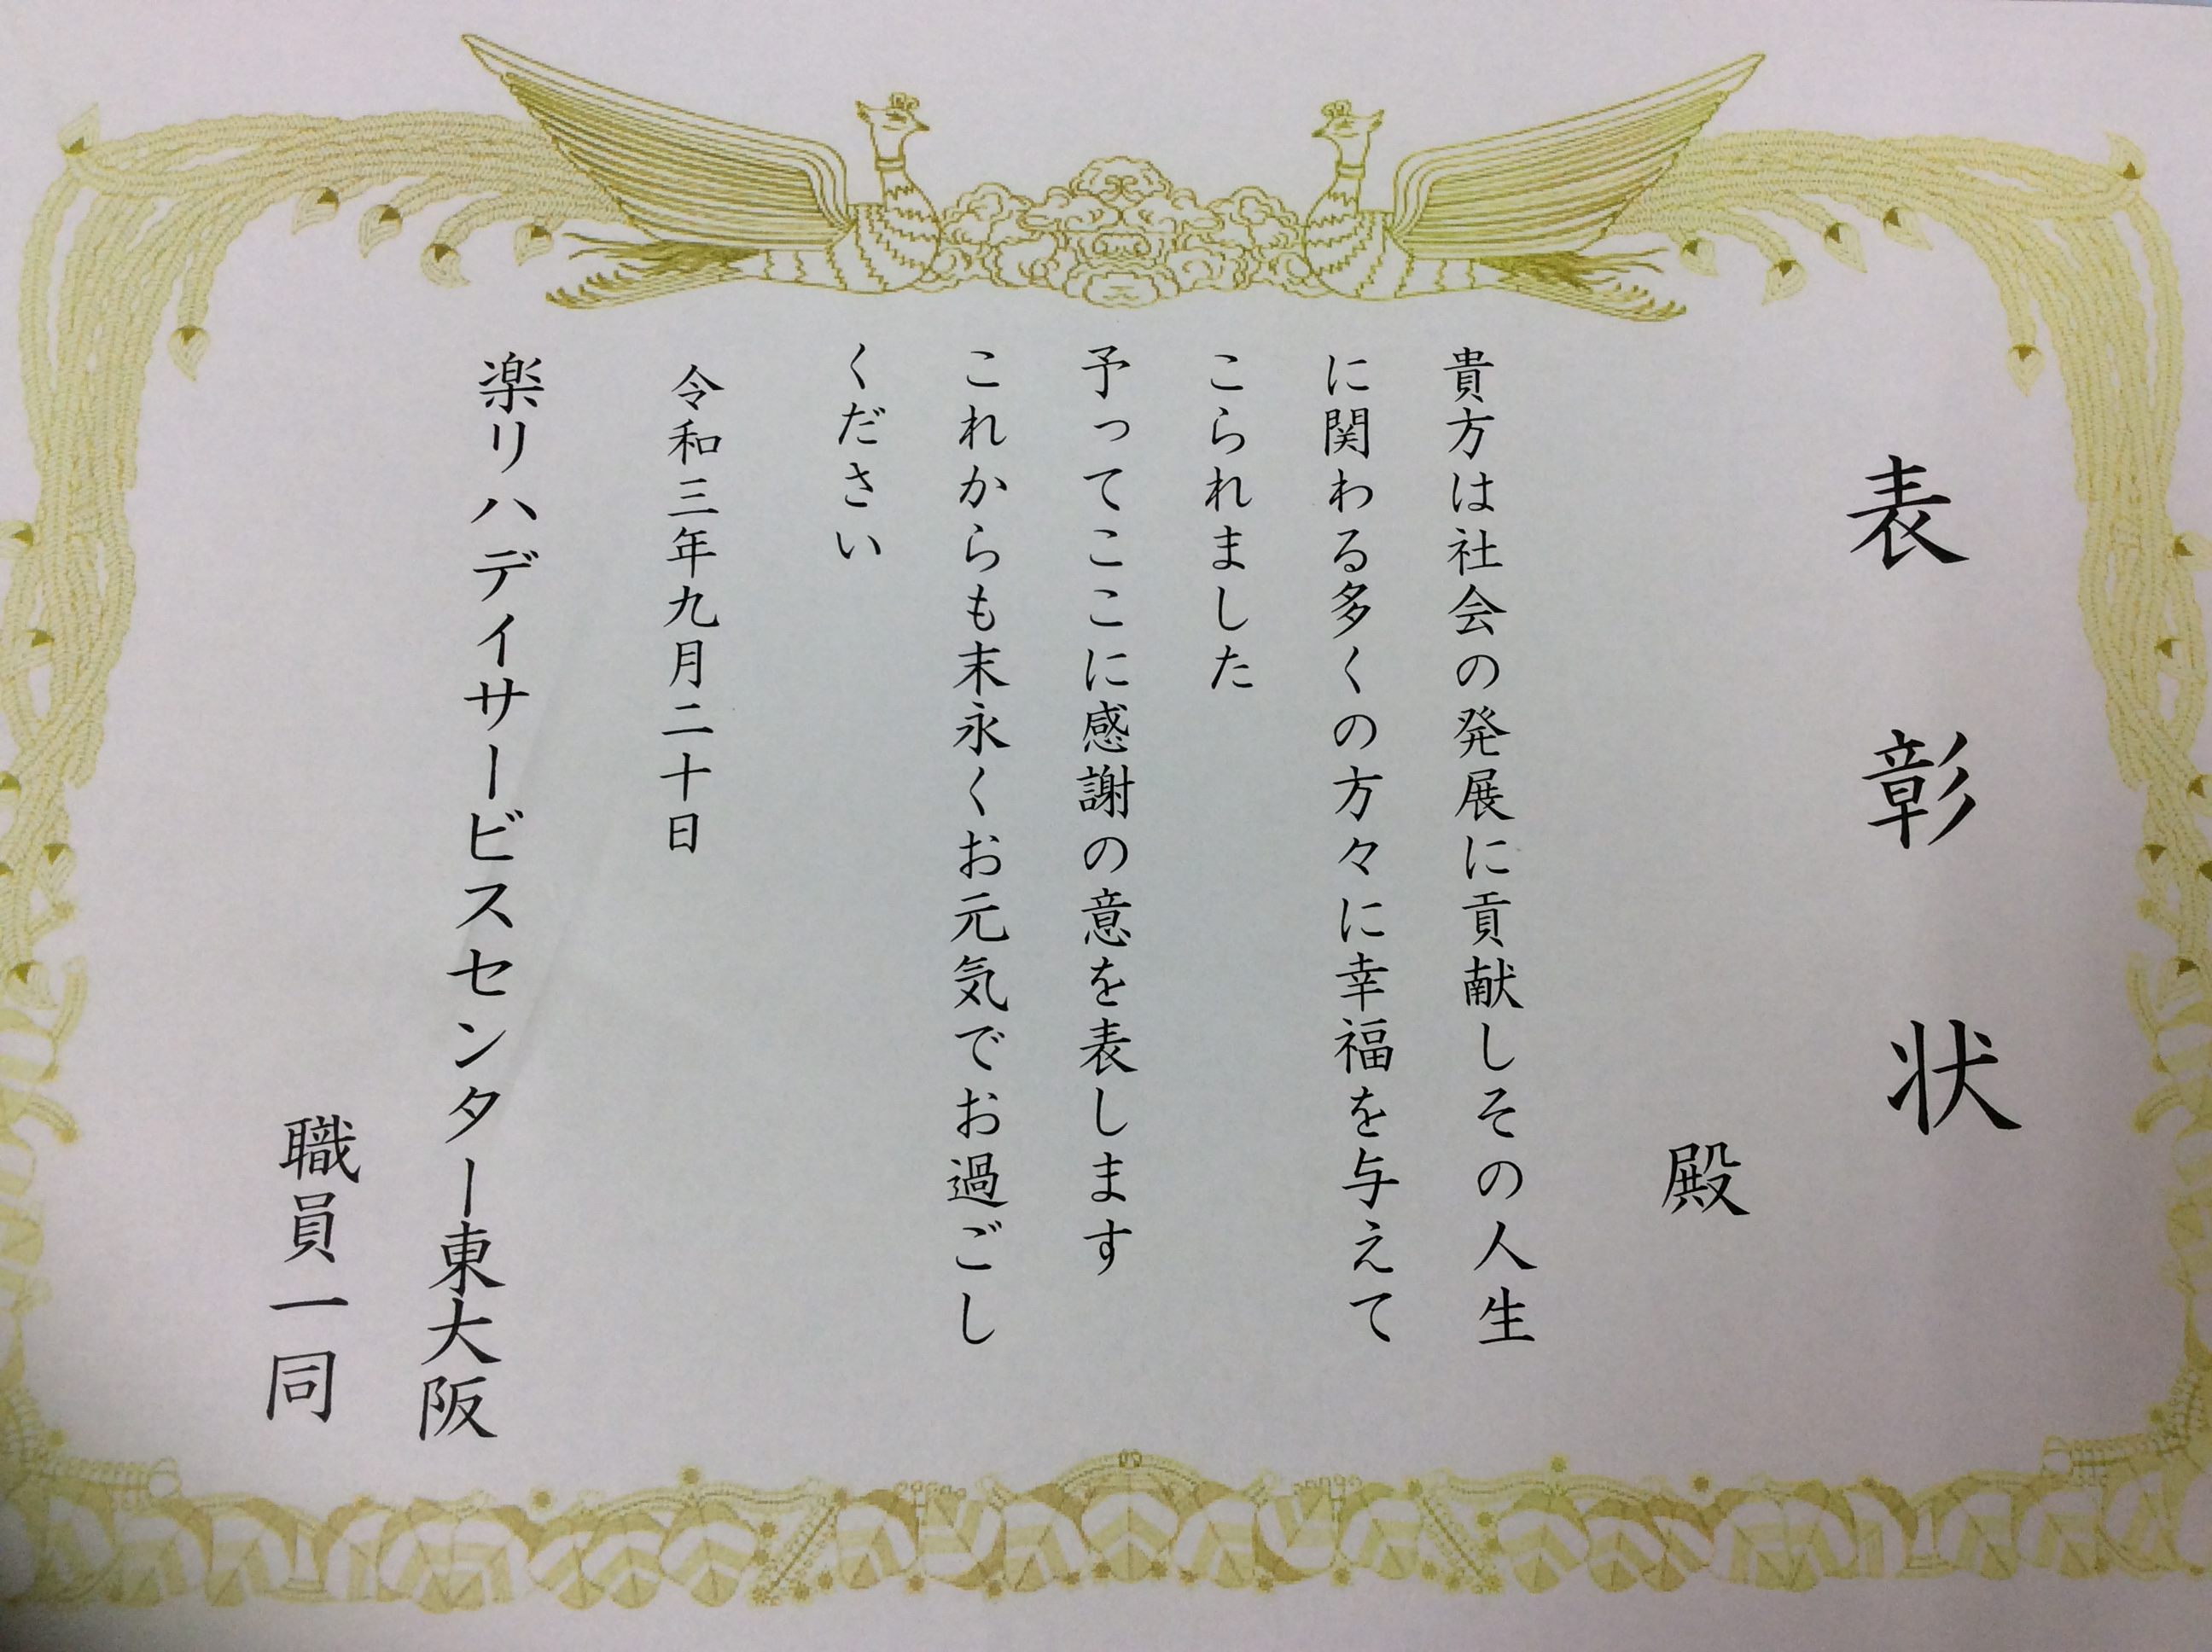 表彰状
殿
貴方は社会の発展に貢献しその人生
に関わる多くの方々に幸福を与えて
こられました
予ってここに感謝の意を表します
これからも末永くお元気でお過ごし
ください
令和三年九月二十日
楽リハデイサービスセンター東大阪
職員一同